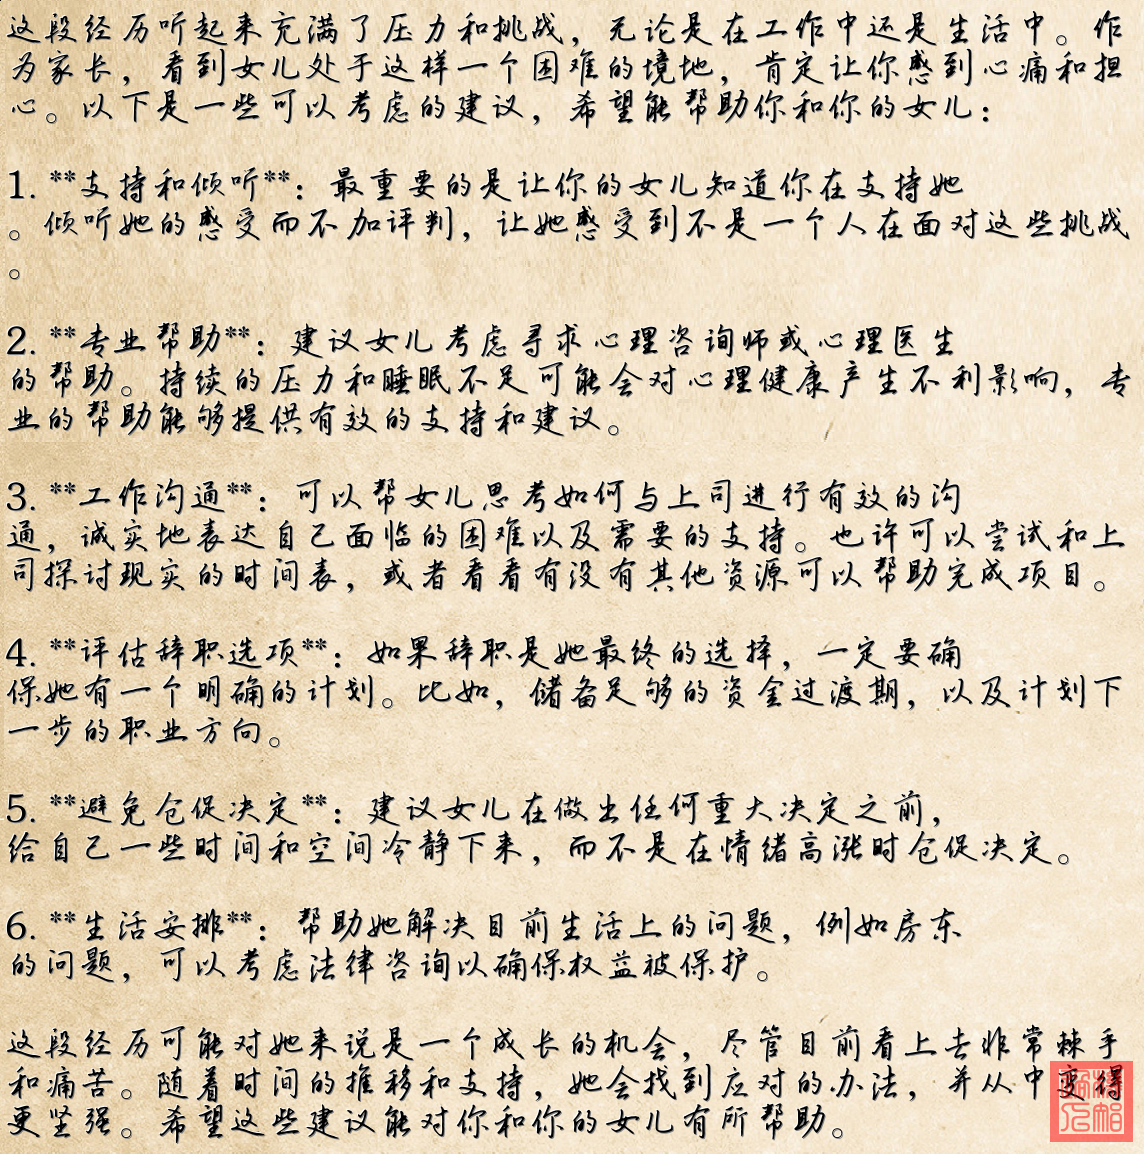 这段经历听起来充满了压力和挑战，无论是在工作中还是生活中。作
为家长，看到女儿处于这样一个困难的境地，肯定让你感到心痛和担
心。以下是一些可以考虑的建议，希望能帮助你和你的女儿：
1. **支持和倾听**：最重要的是让你的女儿知道你在支持她
。倾听她的感受而不加评判，让她感受到不是一个人在面对这些挑战
。
2. **专业帮助**：建议女儿考虑寻求心理咨询师或心理医生
的帮助。持续的压力和睡眠不足可能会对心理健康产生不利影响，专
业的帮助能够提供有效的支持和建议。
3. **工作沟通**：可以帮女儿思考如何与上司进行有效的沟
通，诚实地表达自己面临的困难以及需要的支持。也许可以尝试和上
司探讨现实的时间表，或者看看有没有其他资源可以帮助完成项目。
4. **评估辞职选项**：如果辞职是她最终的选择，一定要确
保她有一个明确的计划。比如，储备足够的资金过渡期，以及计划下
一步的职业方向。
5. **避免仓促决定**：建议女儿在做出任何重大决定之前，
给自己一些时间和空间冷静下来，而不是在情绪高涨时仓促决定。
6. **生活安排**：帮助她解决目前生活上的问题，例如房东
的问题，可以考虑法律咨询以确保权益被保护。
这段经历可能对她来说是一个成长的机会，尽管目前看上去非常棘手
和痛苦。随着时间的推移和支持，她会找到应对的办法，并从中变得
更坚强。希望这些建议能对你和你的女儿有所帮助。